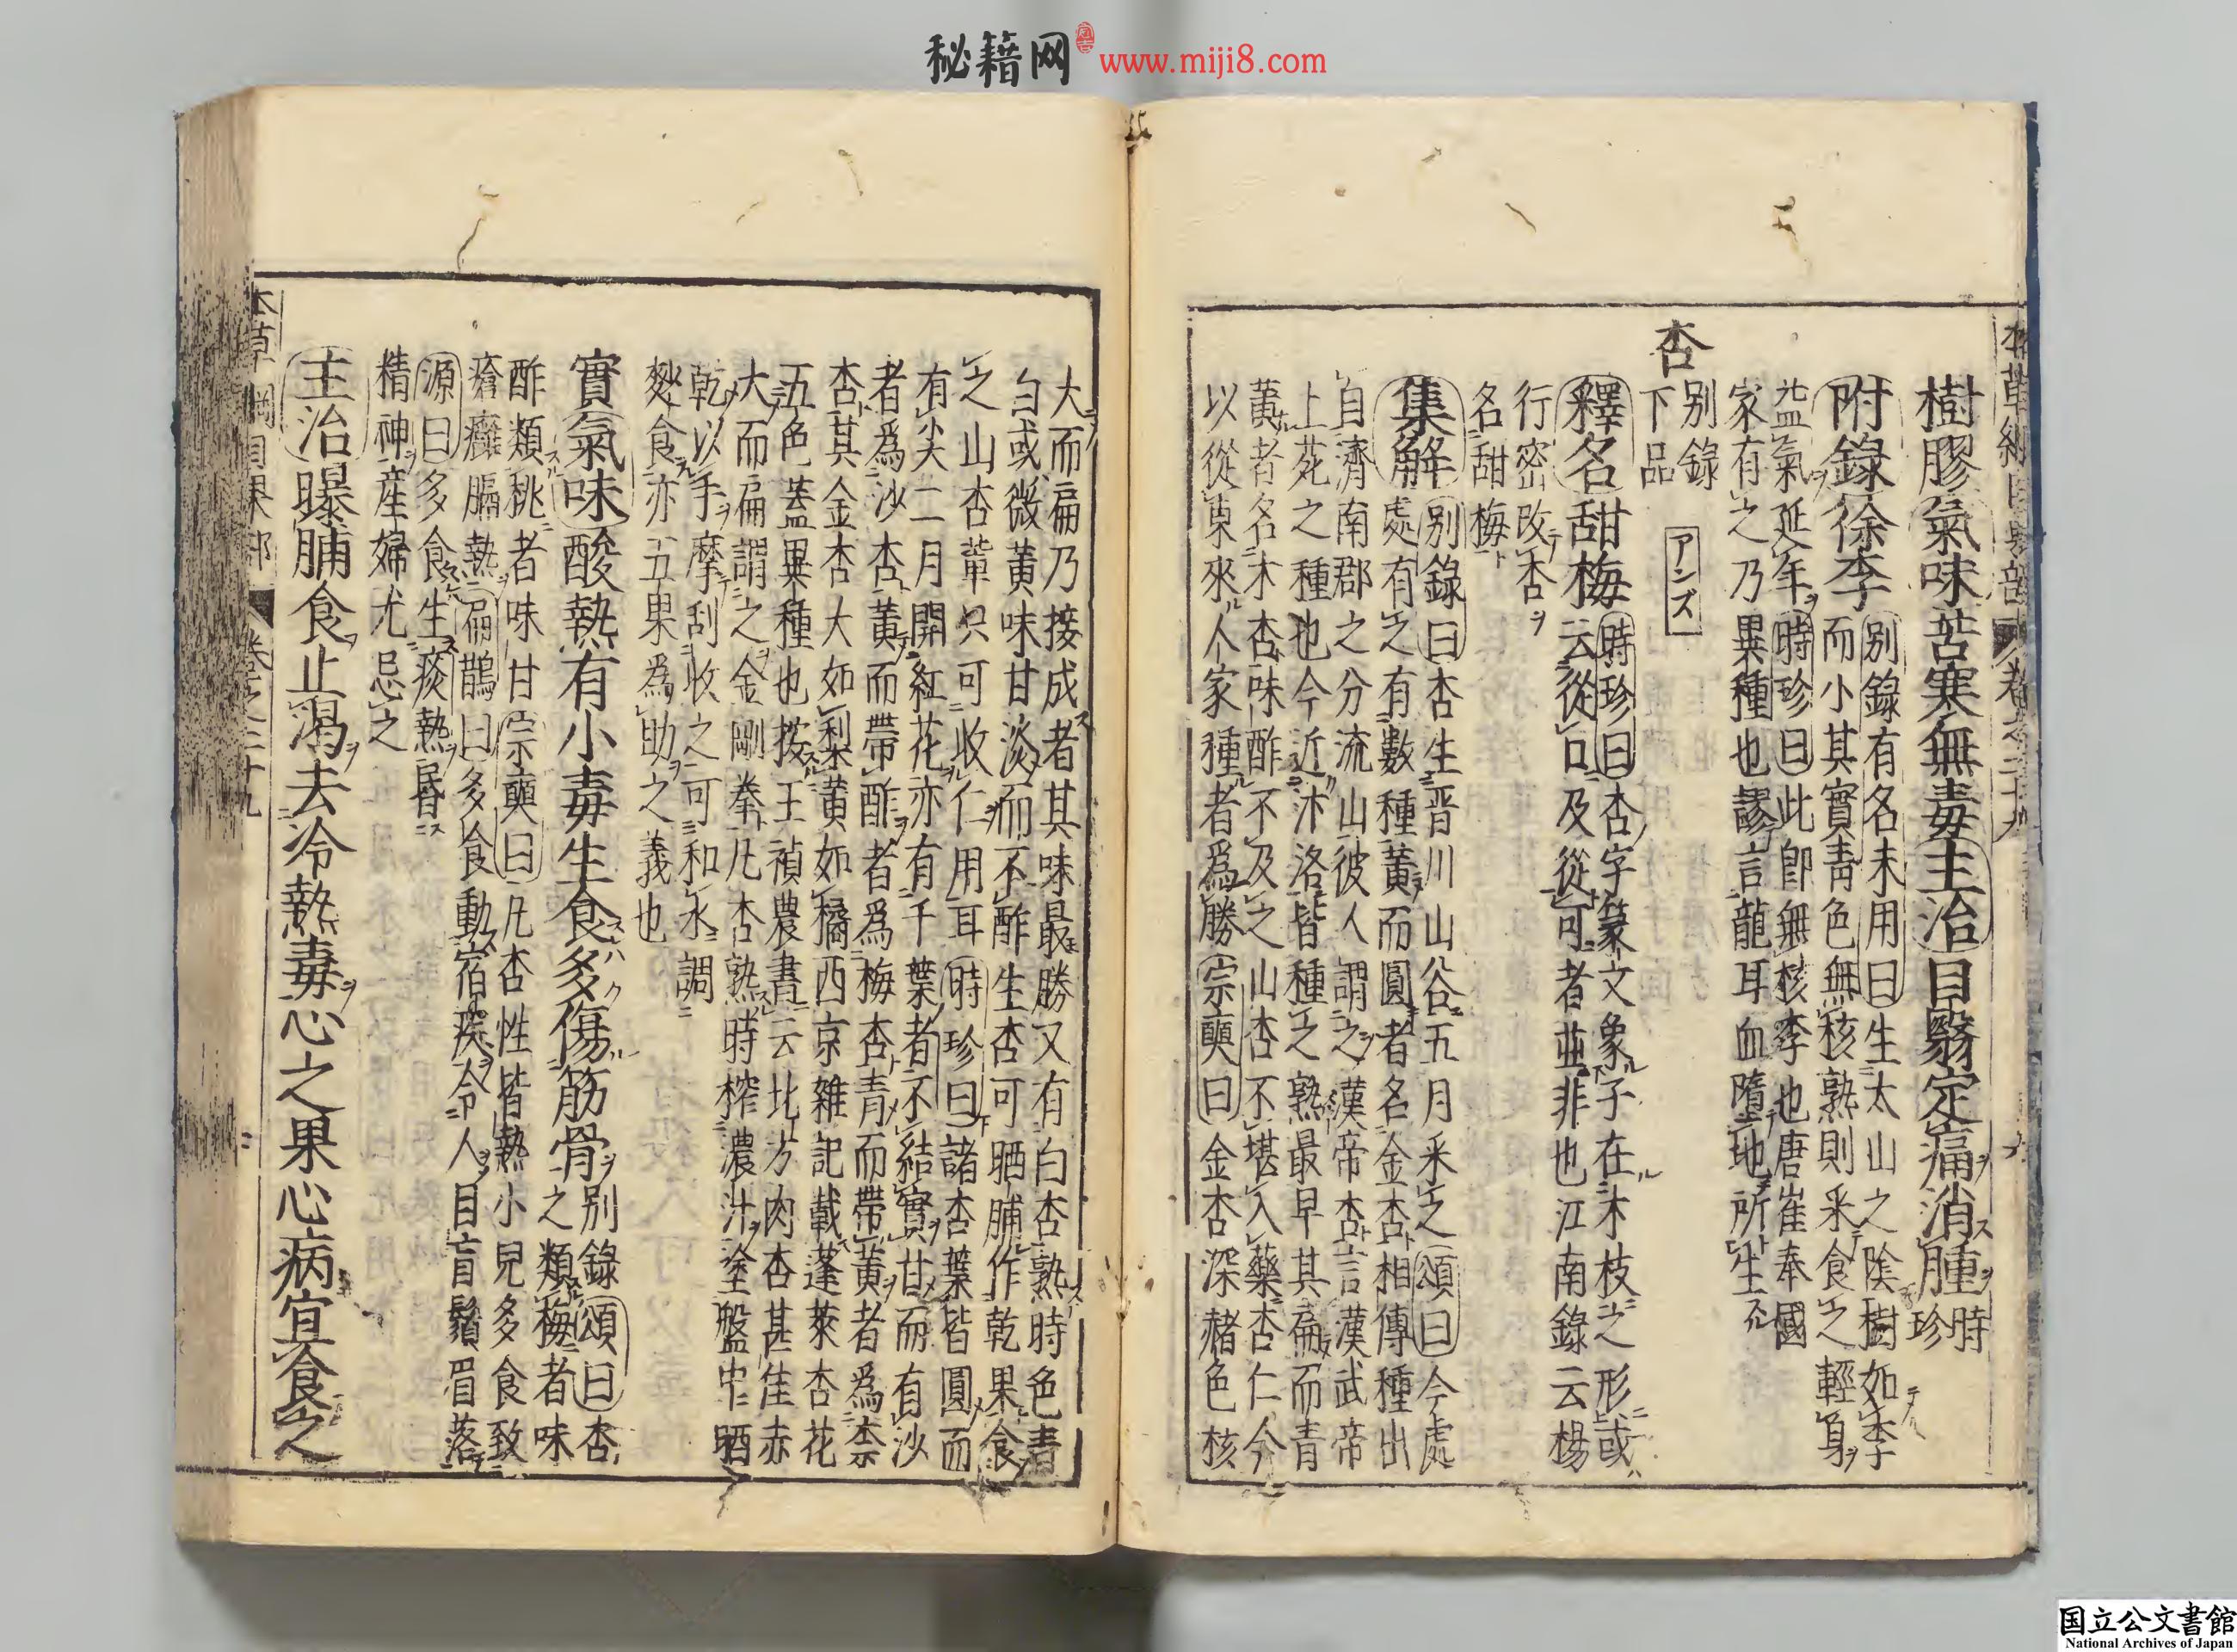 秘籍网 www.miji8.com
本草綱目果部 卷之二十九 六
樹膠氣味苦寒無毒主治目翳定痛消腫時珍
附錄徐李別錄有名未用曰生太山之陰樹如李
而小其實青色無核熟則采食之輕身
益氣延年時珍曰此即無核李也唐崔奉國
家有之乃異種也謬言龍耳血墮地所生
杏
別錄
下品
アンズ
釋名甜梅時珍曰杏字篆文象子在木枝之形或
云從口及從可者並非也江南錄云楊
行密改杏
名甜梅
集解別錄曰杏生晋川山谷五月采之頌曰今處
處有之有數種黃而圓者名金杏相傳種出
自濟南郡之分流山彼人謂之漢帝杏言漢武帝
上苑之種也今近汴洛皆種之熟最早其扁而青
黃者名木杏味酢不及之山杏不堪入藥杏仁今
以從東來人家種者為勝宗奭曰金杏深赭色核
大而扁乃接成者其味最勝又有白杏熟時色青
白或微黃味甘淡而不酢生杏可晒脯作乾果食
之山杏輩只可收仁用耳時珍曰諸杏葉皆圓而
有尖二月開紅花亦有千葉者不結實甘而有沙
者為沙杏黃而帶酢者為梅杏青而帶黃者為柰
杏其金杏大如梨黃如橘西京雜記載蓬萊杏花
五色蓋異種也按王禎農書云北方肉杏甚佳赤
大而扁謂之金剛拳凡杏熟時榨濃汁塗盤中晒
乾以手摩刮收之可和水調
麨食亦五果為助之義也
實氣味酸熱有小毒生食多傷筋骨別錄頌曰杏
之類梅者味
酢類桃者味甘宗奭曰凡杏性皆熱小兒多食致
瘡癰膈熱扁鵲曰多食動宿疾令人目盲鬚眉落
源曰多食生痰熱昏
精神產婦尤忌之
主治曝脯食止渴去冷熱毒心之果心病宜食之
本草綱目果部 卷之二十九
国立公文書館
National Archives of Japan